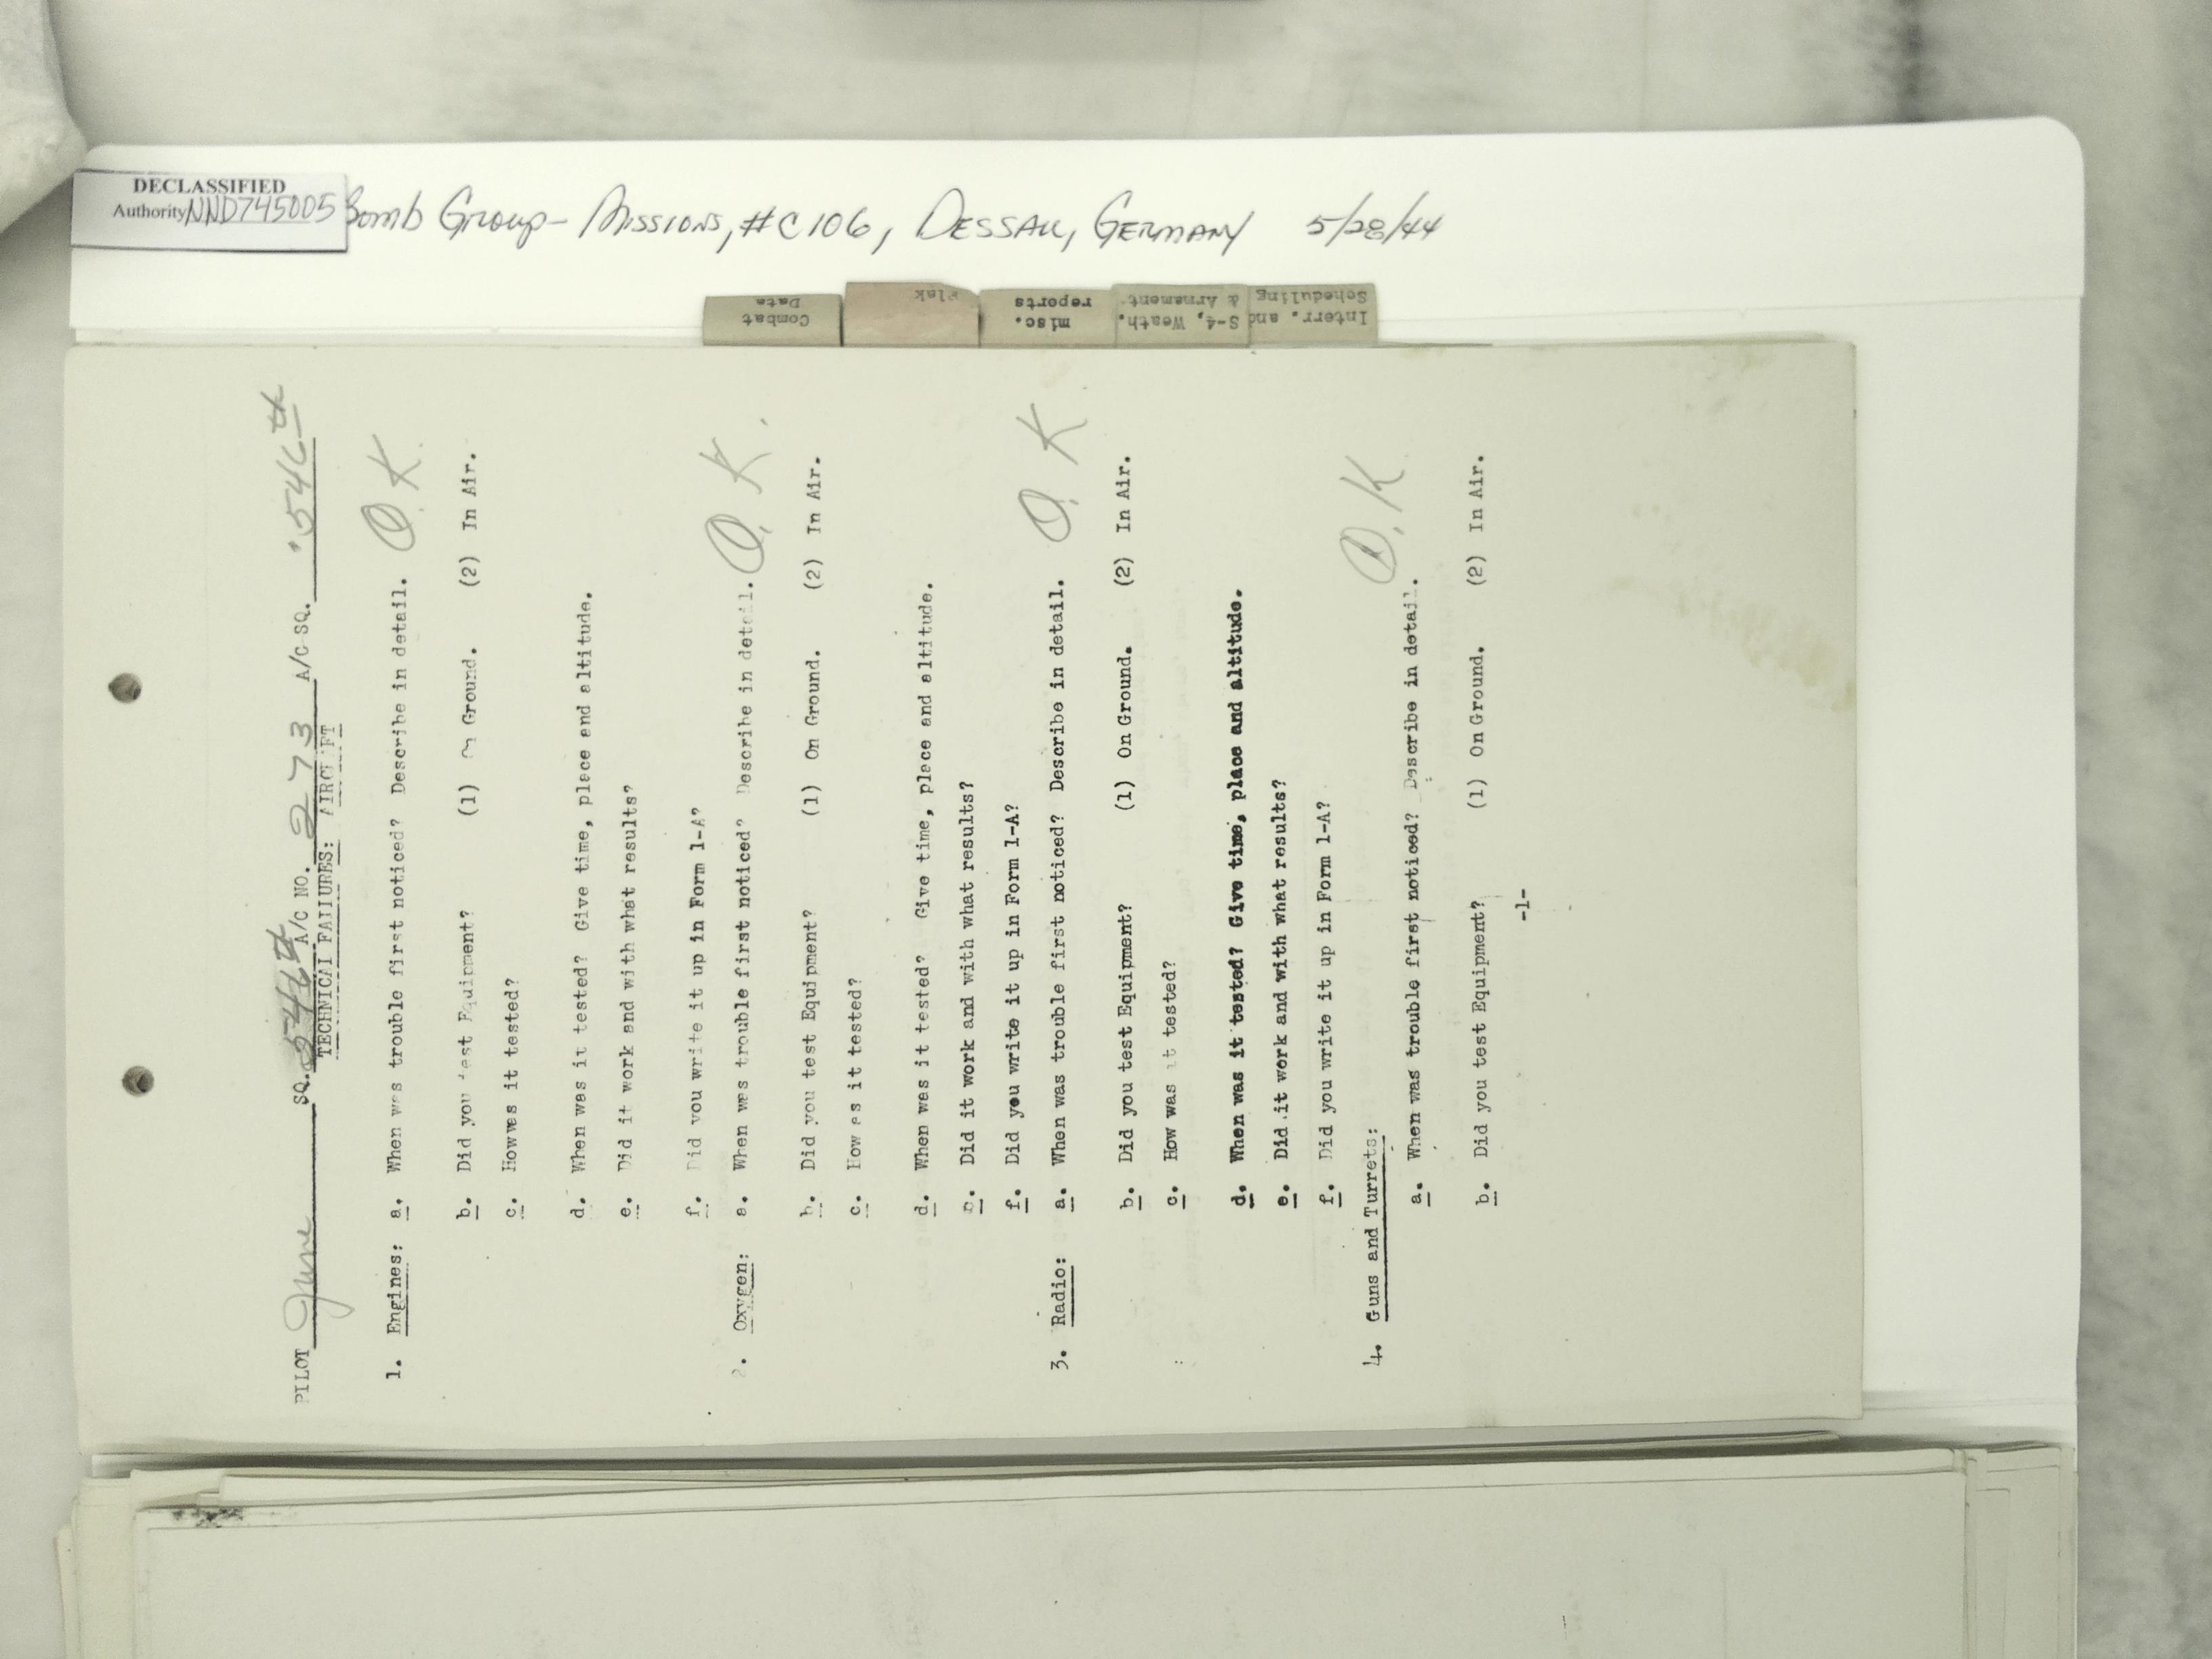 DECLASSIFIED
Authority NND745005
Bomb Group - Missions, #C106, Dessau, Germany 5/28/44
Combat
Data
Flak
misc.
reports
S-4, Weath.
& Armament
Interr. and
Scheduling
PILOT June SQ. A/C NO. 273 A/C SQ.
TECHNICAL FAILURES: AIRCRAFT
1. Engines: a. When was trouble first noticed? Describe in detail. O.K.
b. Did you test Equipment? (1) On Ground. (2) In Air.
c. How was it tested?
d. When was it tested? Give time, place and altitude.
e. Did it work and with what results?
f. Did you write it up in Form 1-A?
2. Oxygen: a. When was trouble first noticed? Describe in detail. O.K.
b. Did you test Equipment? (1) On Ground. (2) In Air.
c. How as it tested?
d. When was it tested? Give time, place and altitude.
e. Did it work and with what results?
f. Did you write it up in Form 1-A?
3. Radio: a. When was trouble first noticed? Describe in detail. O.K
b. Did you test Equipment? (1) On Ground. (2) In Air.
c. How was it tested?
d. When was it tested? Give time, place and altitude.
e. Did it work and with what results?
f. Did you write it up in Form 1-A?
4. Guns and Turrets: O.K
a. When was trouble first noticed? Describe in detail.
b. Did you test Equipment? (1) On Ground. (2) In Air.
-1-